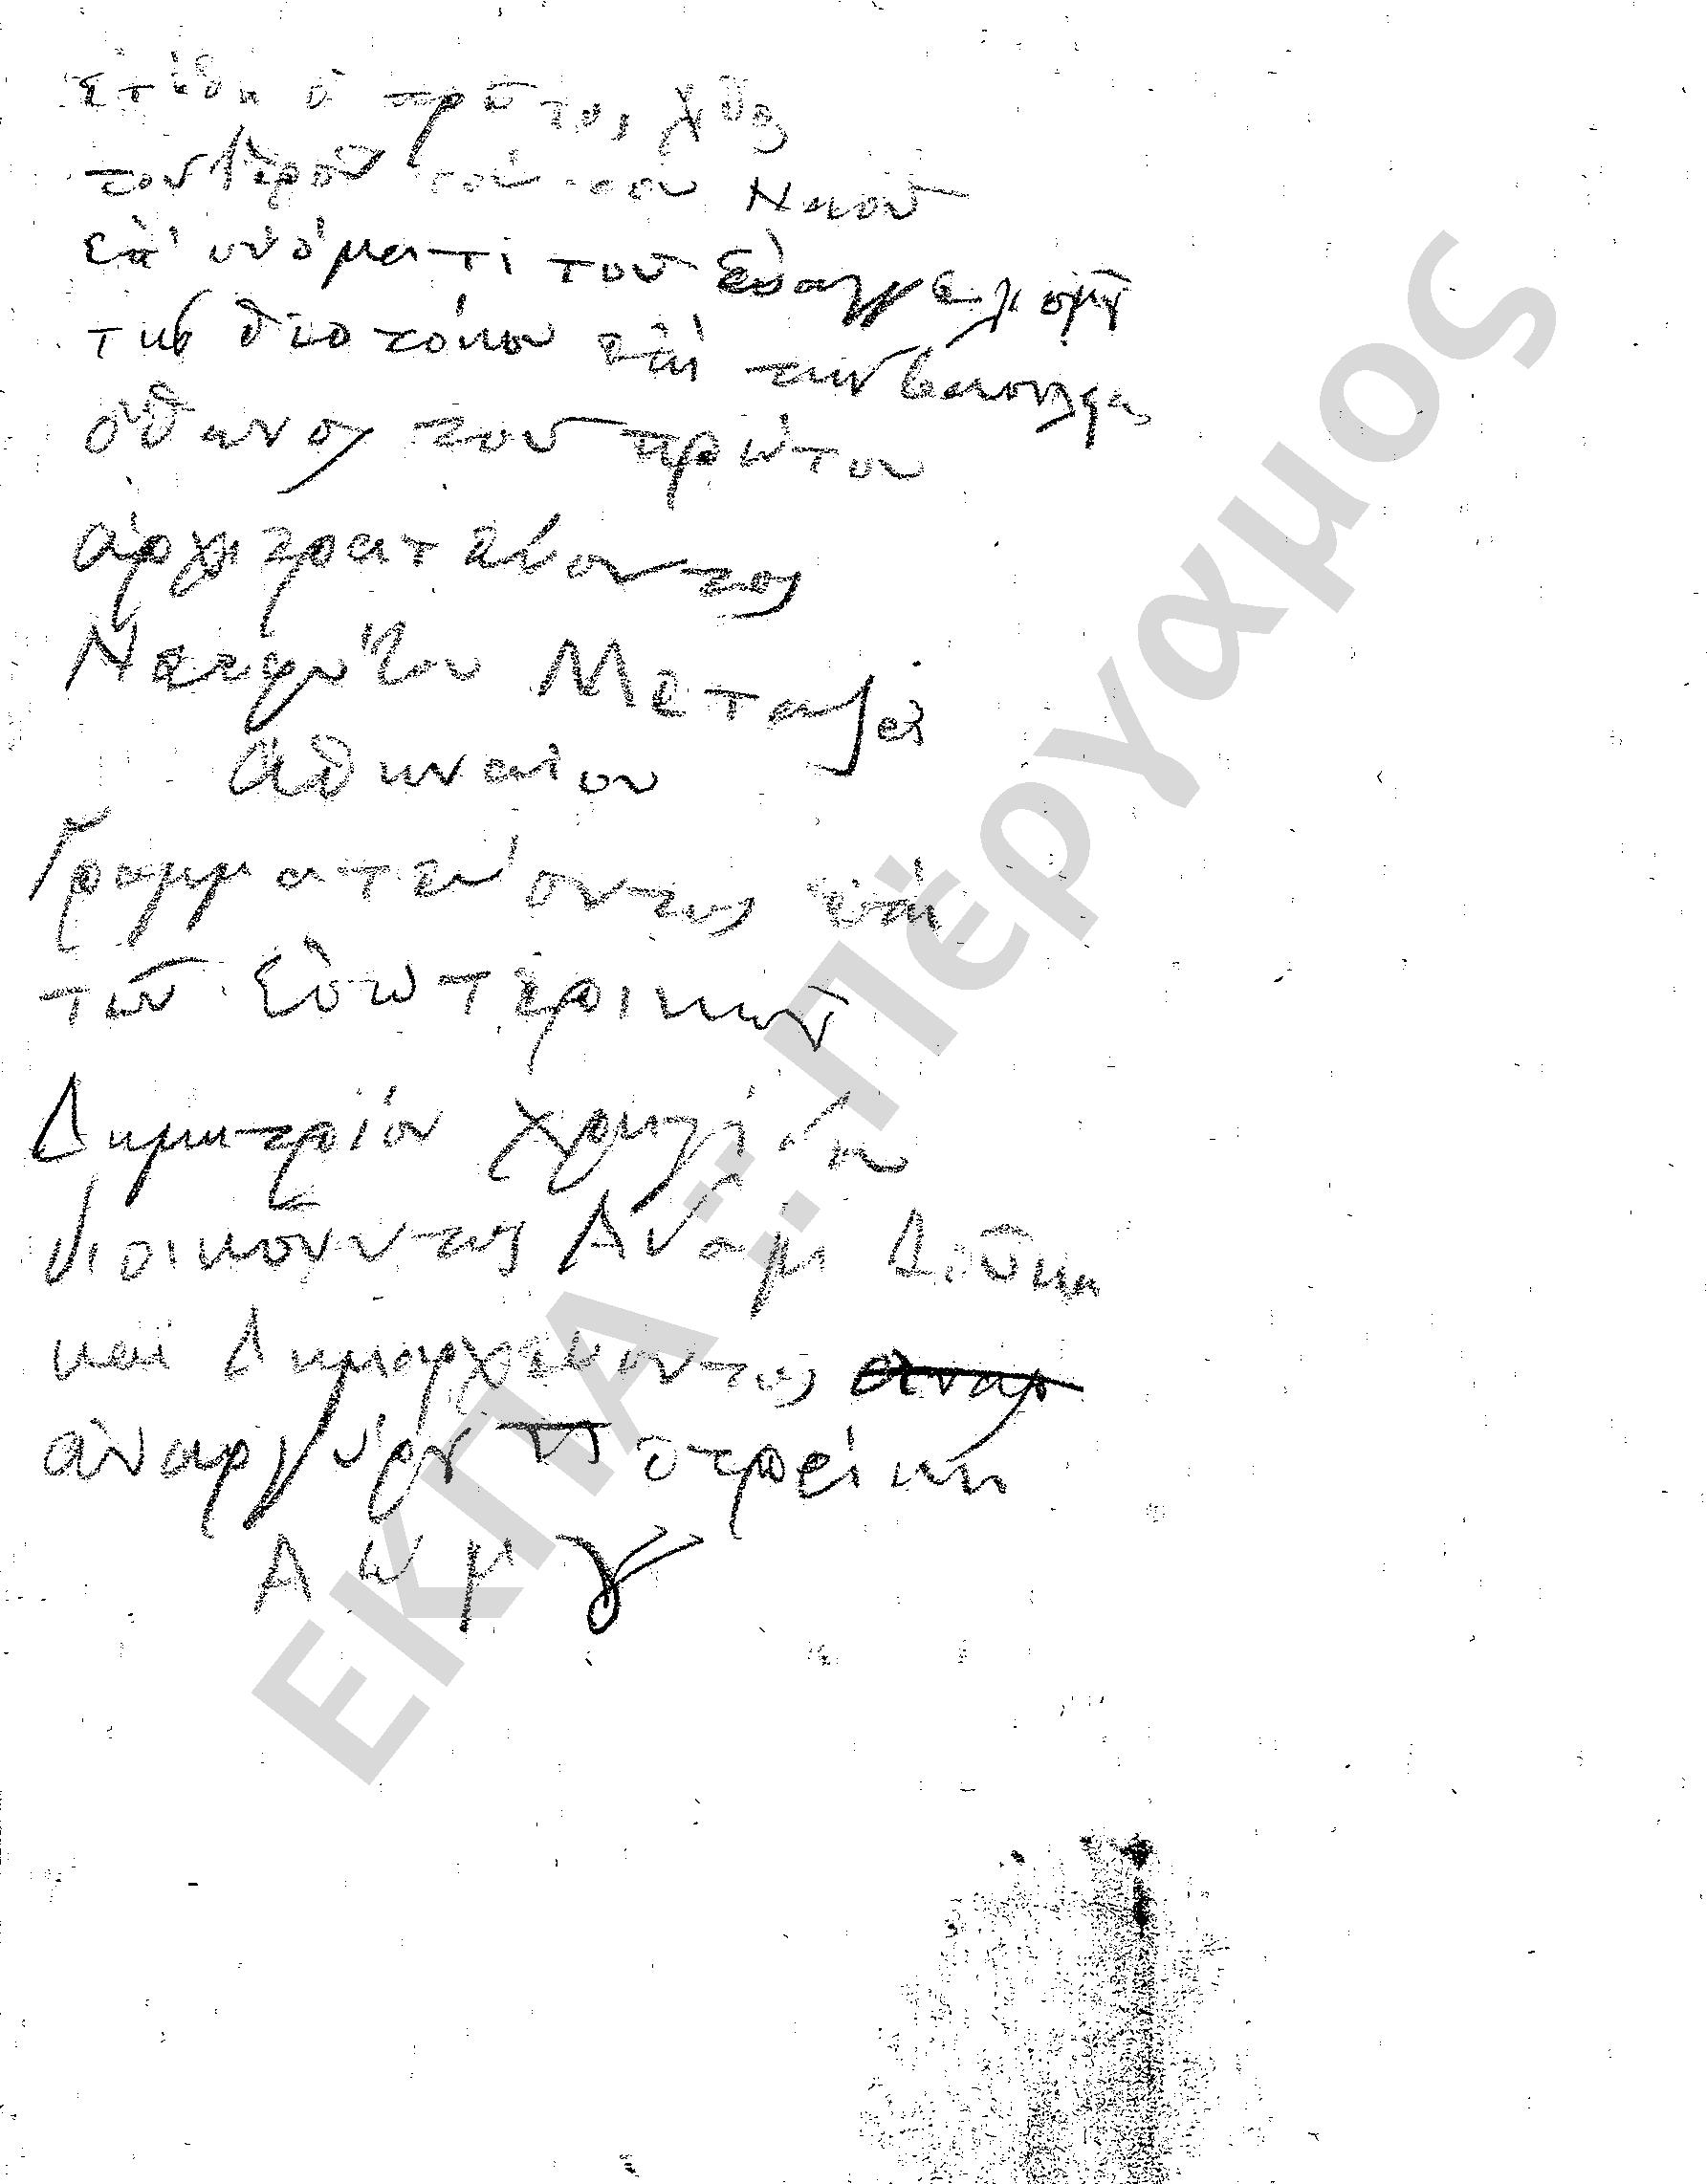 Ἐτέθη ὁ πρῶτος λίθος
τοῦ ἱεροῦ Ναοῦ
ἐπ' ὀνόματι τοῦ Εὐαγγελισμοῦ
τῆς Θεοτόκου ἐπὶ τῆς βασιλείας
Ὄθωνος τοῦ πρώτου
ἀρχιερατεύοντος
Νεοφύτου Μεταξᾶ
Ἀθηναίου
Γραμματεύοντος ἐπὶ
τῶν Ἐσωτερικῶν
Δημητρίου Χρηστίδη
διοικοῦντος Ἀδάμ Δούκα
καὶ Δημαρχεύοντος ἀναρ
ἀναργύρου Πετράκη
ΑΩΜΓ
ΕΚΠΑ :: Πέργαμος